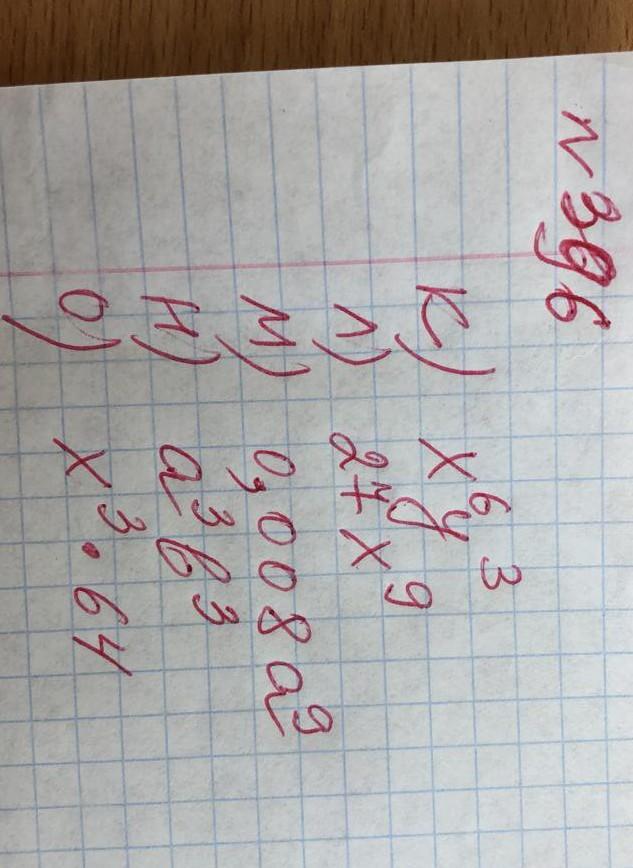 n 396
к) x⁶y³
л) 27x⁹
м) 0,008a⁹
н) a³b³
о) x³·64